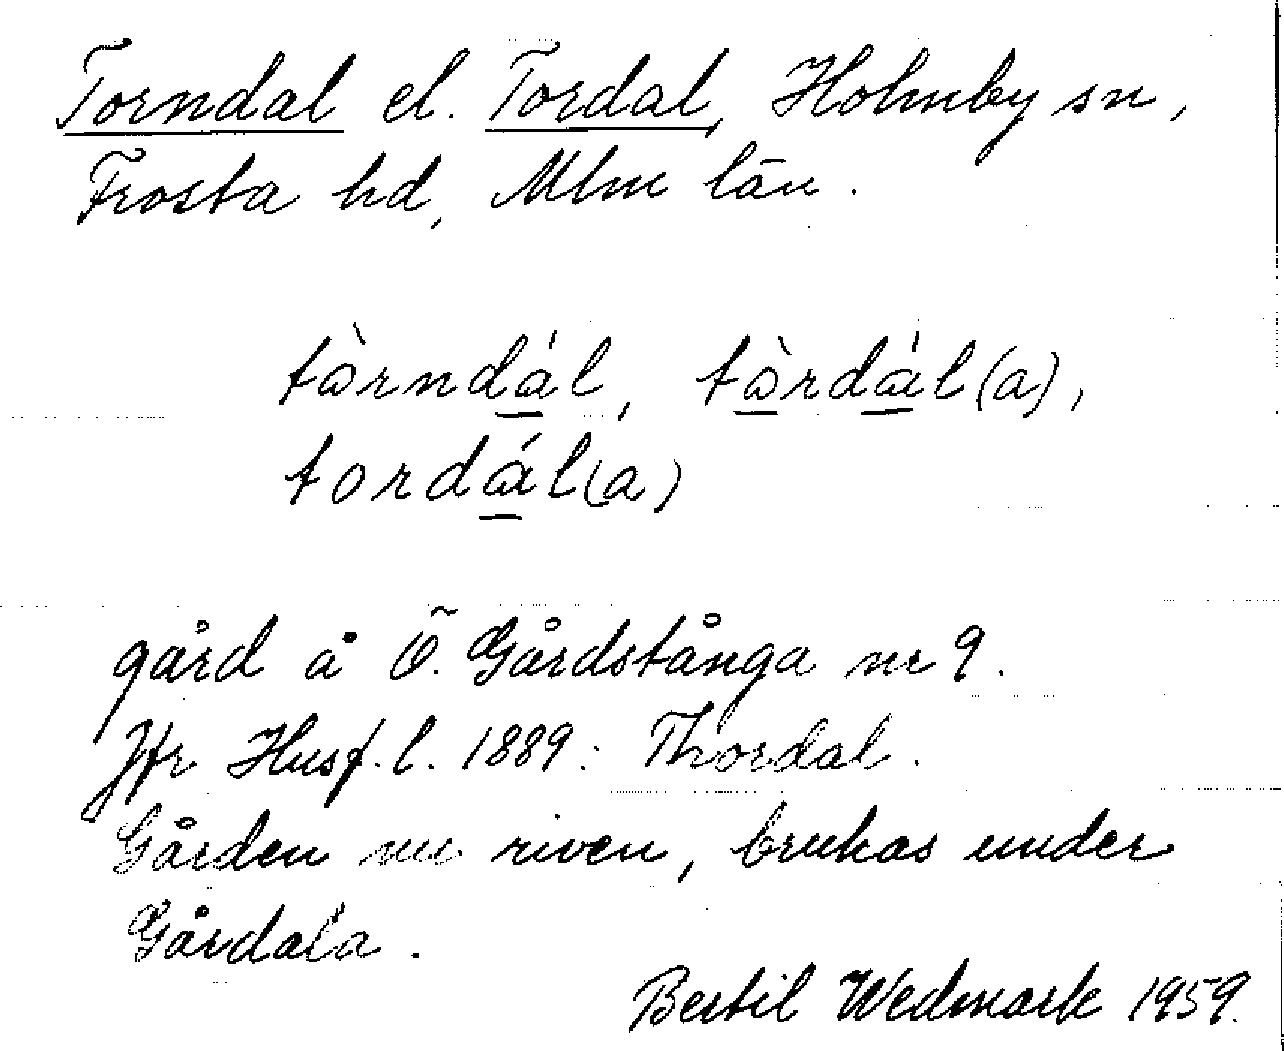 Torndal el. Tordal, Holmby sn,
Frosta hd, Mlm län.
tòrndál, tòrdál(a),
tordál(a)
gård å Ö. Gårdstånga nr 9.
Jfr Husf. l. 1889: Thordal.
Gården nu riven, brukas under
Gårdala.
Bertil Wedmark 1959.